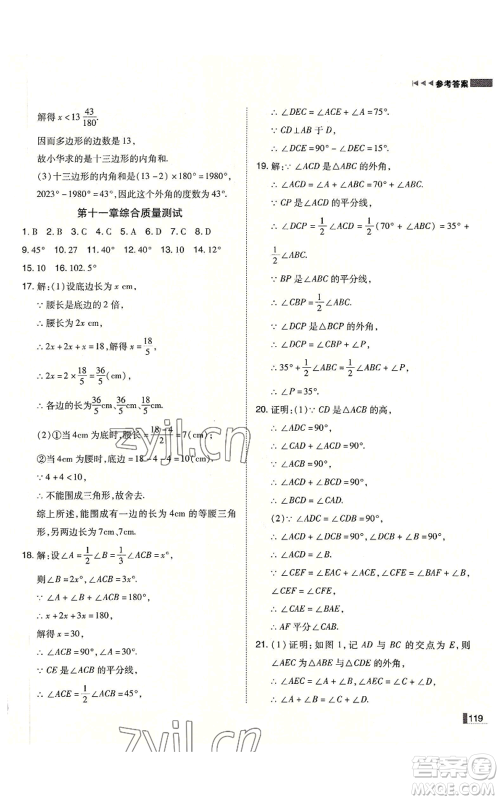 参考答案
解得 x＜13 43/180.
因而多边形的边数是 13,
故小华求的是十三边形的内角和.
(3)十三边形的内角和=(13-2)×180°=1980°,
2023°-1980°=43°,因此这个外角的度数为 43°.
第十一章综合质量测试
1. B 2. B 3. C 4. C 5. A 6. C 7. D 8. D
9. 45° 10. 27 11. 24° 12. 40° 13. 14 14. 12°
15. 10 16. 102.5°
17. 解:(1)设底边长为 x cm,
∵腰长是底边的 2 倍,
∴腰长为 2x cm,
∴2x+2x+x=18,解得 x=18/5,
∴2x=2×18/5=36/5(cm),
∴各边的长为:36/5cm,36/5cm,18/5cm.
(2)①当 4cm 为底时,腰长=(18-4)/2=7(cm);
②当 4cm 为腰时,底边=18-4-4=10(cm),
∵4+4<10,
∴不能围成三角形,故舍去.
综上所述,能围成有一边的长为 4cm 的等腰三角形,另外两边长为 7cm,7cm.
18. 解:设∠A=1/2∠B=1/3∠ACB=x°,
则∠B=2x°,∠ACB=3x°,
∵∠A+∠B+∠ACB=180°,
∴x+2x+3x=180,
解得 x=30,
∴∠A=30°,∠ACB=90°,
∵CE 是∠ACB 的平分线,
∴∠ACE=1/2∠ACB=45°,
∴∠DEC=∠ACE+∠A=75°.
∵CD⊥AB 于 D,
∴∠CDE=90°,
∴∠DCE=90°-∠DEC=15°.
19. 解:∵∠ACD 是△ABC 的外角,
∴∠ACD=∠A+∠ABC,
∵CP 是∠ACD 的平分线,
∴∠DCP=1/2∠ACD=1/2(70°+∠ABC)=35°+
1/2∠ABC,
∵BP 是∠ABC 的平分线,
∴∠CBP=1/2∠ABC,
∵∠DCP 是△BCP 的外角,
∴∠DCP=∠CBP+∠P,
∴35°+1/2∠ABC=1/2∠ABC+∠P,
∴∠P=35°.
20. 证明:(1)∵CD 是△ABC 的高,
∴∠ADC=90°,
∴∠CAD+∠ACD=90°,
∵∠ACD+∠BCD=90°,
∴∠BCD=∠CAD.
(2)∵∠ADC=∠ACB=90°,
∴∠ACD+∠DCB=∠ACD+∠CAD,
∵∠CEF=∠ACD+∠CAE,∠CFE=∠B+∠BAF,
∵∠CEF=∠CFE,
∴∠CAE=∠BAF,
∴AF 平分∠CAB.
21. (1)证明:如图 1,记 AD 与 BC 的交点为 E,则
∠AEC 为△ABE 与△CDE 的外角,
∴∠AEC=∠A+∠B,∠AEC=∠C+∠D,
∴∠A+∠B=∠C+∠D.
119
zyjl.cn
zyjl.cn
作业精灵